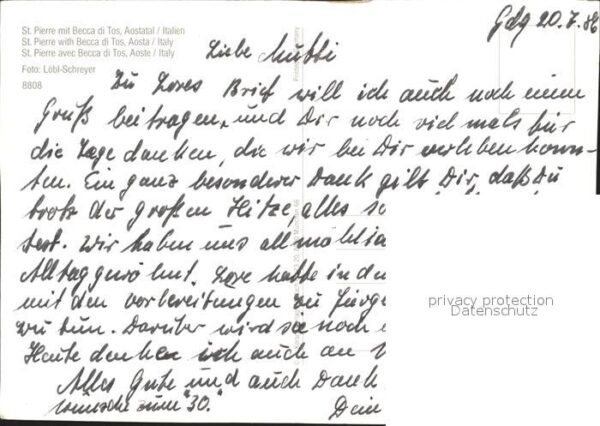 St. Pierre mit Becca di Tos, Aostatal / Italien
St. Pierre with Becca di Tos, Aosta / Italy
St. Pierre avec Becca di Tos, Aoste / Italy
Foto: Löbl-Schreyer
8808
Gdg 20.7.86
Liebe Mutti
Zu Lores Brief will ich auch noch einen
Gruß beitragen, und Dir noch vielmals für
die Tage danken, die wir bei Dir verleben konn-
ten. Ein ganz besonderer Dank gilt Dir, daß Du
trotz der großen Hitze, alles so
test. Wir haben uns allmählia
Alltag gewöhnt. Lore hatte in du
mit den vorbereitungen zu Jürge
zu tun. Darüber wird sie noch
Heute denken ich auch an
Alles Gute und auch Dank
wünsche zum "30."
Dein
privacy protection
Datenschutz